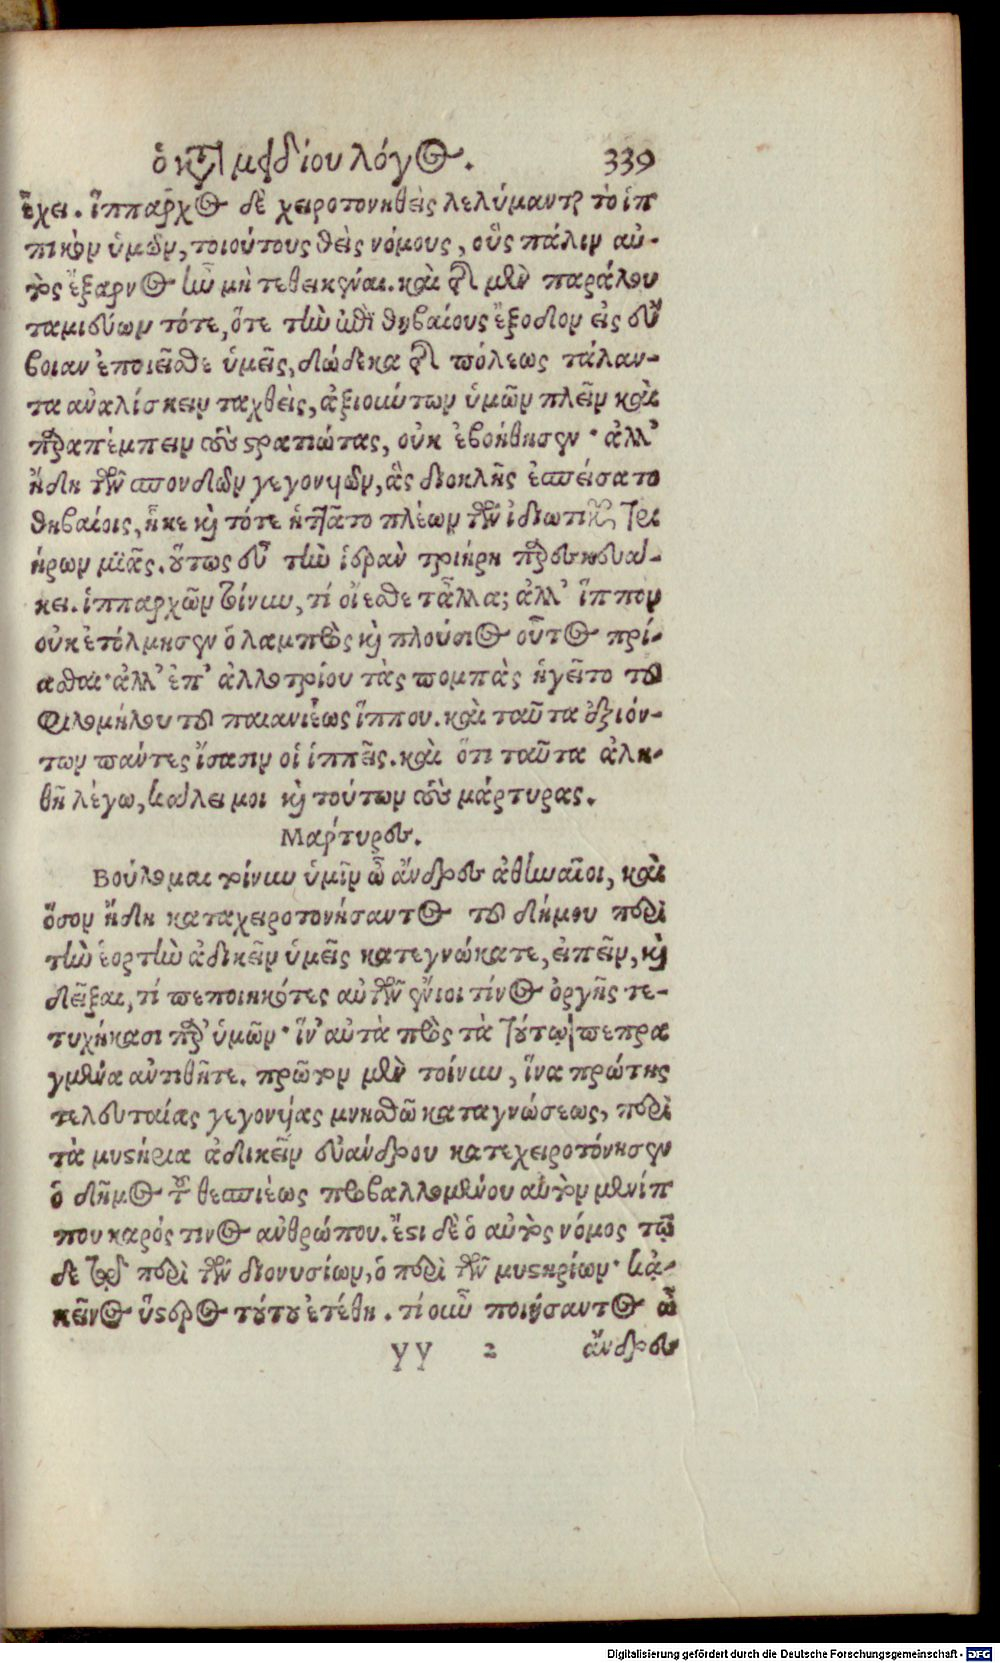 ὁ κατὰ μειδίου λόγος. 339
ἔχει. ἵππαρχος δὲ χειροτονηθεὶς λελύμανται τὸ ἱπ
πικὸν ὑμῶν, τοιούτους θεὶς νόμους, οὓς πάλιν αὐ-
τὸς ἔξαρνος ἦν μὴ τεθεικέναι. καὶ τῆς μὲν παράλου
ταμιεύων τότε, ὅτε τὴν ἐπὶ θηβαίους ἔξοδον εἰς εὔ
βοιαν ἐποιεῖσθε ὑμεῖς, δώδεκα τῆς πόλεως τάλαν-
τα ἀναλίσκειν ταχθεὶς, ἀξιούντων ὑμῶν πλεῖν καὶ
παραπέμπειν τοὺς στρατιώτας, οὐκ ἐβοήθησεν· ἀλλ'
ἤδη τῶν σπονδῶν γεγονυιῶν, ἃς διοκλῆς ἐσπείσατο
θηβαίοις, ἧκε καὶ τότε ἡττᾶτο πλέων τῶν ἰδιωτικῶν τρι
ήρων μιᾶς. οὕτως εὖ τὴν ἱερὰν τριήρη παρεσκευά-
κει. ἱππαρχῶν τοίνυν, τί οἴεσθε τἆλλα; ἀλλ' ἵππον
οὐκ ἐτόλμησεν ὁ λαμπρὸς καὶ πλούσιος οὗτος πρί-
ασθαι· ἀλλ' ἐπ' ἀλλοτρίου τὰς πομπὰς ἡγεῖτο τοῦ
Φιλομήλου τοῦ παιανιέως ἵππου. καὶ ταῦτα ἀξιόν-
των πάντες ἴσασιν οἱ ἱππεῖς. καὶ ὅτι ταῦτα ἀλη-
θῆ λέγω, κάλει μοι καὶ τούτων τοὺς μάρτυρας.
Μάρτυρες.
Βούλομαι τοίνυν ὑμῖν ὦ ἄνδρες ἀθηναῖοι, καὶ
ὅσον ἤδη καταχειροτονήσαντος τοῦ δήμου περὶ
τὴν ἑορτὴν ἀδικεῖν ὑμεῖς κατεγνώκατε, εἰπεῖν, καὶ
δεῖξαι, τί πεποιηκότες αὐτῶν ἔνιοι τίνος ὀργῆς τε-
τυχήκασι παρ' ὑμῶν· ἵν' αὐτὰ πρὸς τὰ τούτῳ πεπρα
γμένα ἀντιθῆτε. πρῶτον μὲν τοίνυν, ἵνα πρώτης
τελευταίας γεγονυίας μνησθῶ καταγνώσεως, περὶ
τὰ μυστήρια ἀδικεῖν εὐάνδρου κατεχειροτόνησεν
ὁ δῆμος τοῦ θεσπιέως προβαλλομένου αὐτὸν μενίπ
που καρός τινος ἀνθρώπου. ἔστι δὲ ὁ αὐτὸς νόμος τῷ
δε τῷ περὶ τῶν διονυσίων, ὁ περὶ τῶν μυστηρίων· κἀ-
κεῖνος ὕστερος τούτου ἐτέθη. τί οὖν ποιήσαντος ὦ
yy 2 ἄνδρες
Digitalisierung gefördert durch die Deutsche Forschungsgemeinschaft - DFG